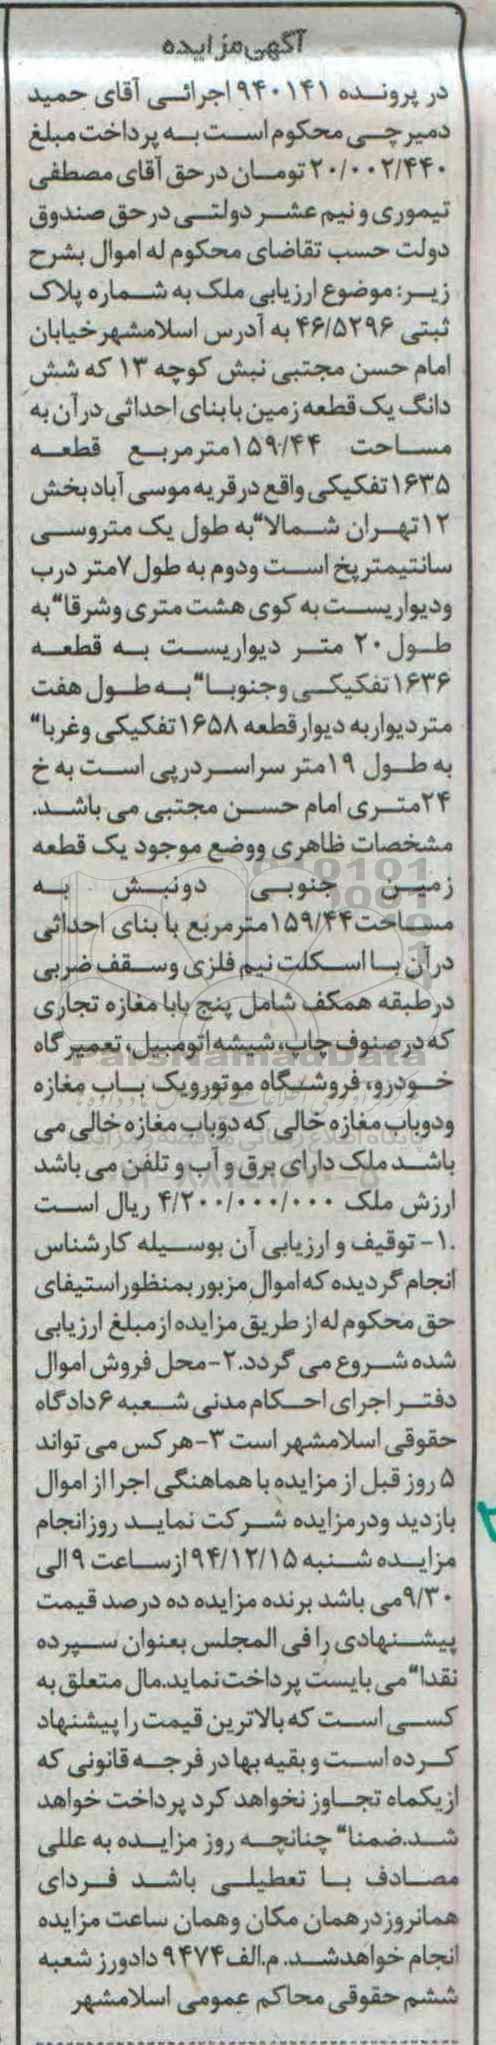 آگهی مزایده
در پرونده ۹۴۰۱۴۱ اجرائی آقای حمید
دمیرچی محکوم است به پرداخت مبلغ
۲۰/۰۰۲/۴۴۰ تومان در حق آقای مصطفی
تیموری و نیم عشر دولتی در حق صندوق
دولت حسب تقاضای محکوم له اموال بشرح
زیر: موضوع ارزیابی ملک به شماره پلاک
ثبتی ۴۶/۵۲۹۶ به آدرس اسلامشهر خیابان
امام حسن مجتبی نبش کوچه ۱۳ که شش
دانگ یک قطعه زمین با بنای احداثی در آن به
مساحت ۱۵۹/۴۴ مترمربع قطعه
۱۶۳۵ تفکیکی واقع در قریه موسی آباد بخش
۱۲ تهران شمالا" به طول یک متروسی
سانتیمتر پخ است ودوم به طول ۷متر درب
ودیواریست به کوی هشت متری وشرقا" به
طول ۲۰ متر دیواریست به قطعه
۱۶۳۶ تفکیکی وجنوبا" به طول هفت
متر دیوار به دیوار قطعه ۱۶۵۸ تفکیکی وغربا"
به طول ۱۹متر سراسر درپی است به خ
۲۴متری امام حسن مجتبی می باشد.
مشخصات ظاهری ووضع موجود یک قطعه
زمین جنوبی دونبش به
مساحت۱۵۹/۴۴مترمربع با بنای احداثی
در آن با اسکلت نیم فلزی وسقف ضربی
درطبقه همکف شامل پنج بابا مغازه تجاری
که در صنوف چاپ، شیشه اتومبیل، تعمیرگاه
خودرو، فروشگاه موتورویک باب مغازه
ودوباب مغازه خالی که دوباب مغازه خالی می
باشد ملک دارای برق و آب و تلفن می باشد
ارزش ملک ۴/۲۰۰/۰۰۰/۰۰۰ ریال است
.۱- توقیف و ارزیابی آن بوسیله کارشناس
انجام گردیده که اموال مزبور بمنظور استیفای
حق محکوم له از طریق مزایده از مبلغ ارزیابی
شده شروع می گردد.۲-محل فروش اموال
دفتر اجرای احکام مدنی شعبه ۶ دادگاه
حقوقی اسلامشهر است ۳-هرکس می تواند
۵ روز قبل از مزایده با هماهنگی اجرا از اموال
بازدید ودرمزایده شرکت نماید روزانجام
مزایده شنبه ۹۴/۱۲/۱۵ ازساعت ۹ الی
۹/۳۰می باشد برنده مزایده ده درصد قیمت
پیشنهادی را فی المجلس بعنوان سپرده
نقدا" می بایست پرداخت نماید.مال متعلق به
کسی است که بالاترین قیمت را پیشنهاد
کرده است و بقیه بها در فرجه قانونی که
ازیکماه تجاوز نخواهد کرد پرداخت خواهد
شد.ضمنا" چنانچه روز مزایده به عللی
مصادف با تعطیلی باشد فردای
همانروز درهمان مکان وهمان ساعت مزایده
انجام خواهدشد. م.الف ۹۴۷۴ دادورز شعبه
ششم حقوقی محاکم عمومی اسلامشهر
ParsNamadData